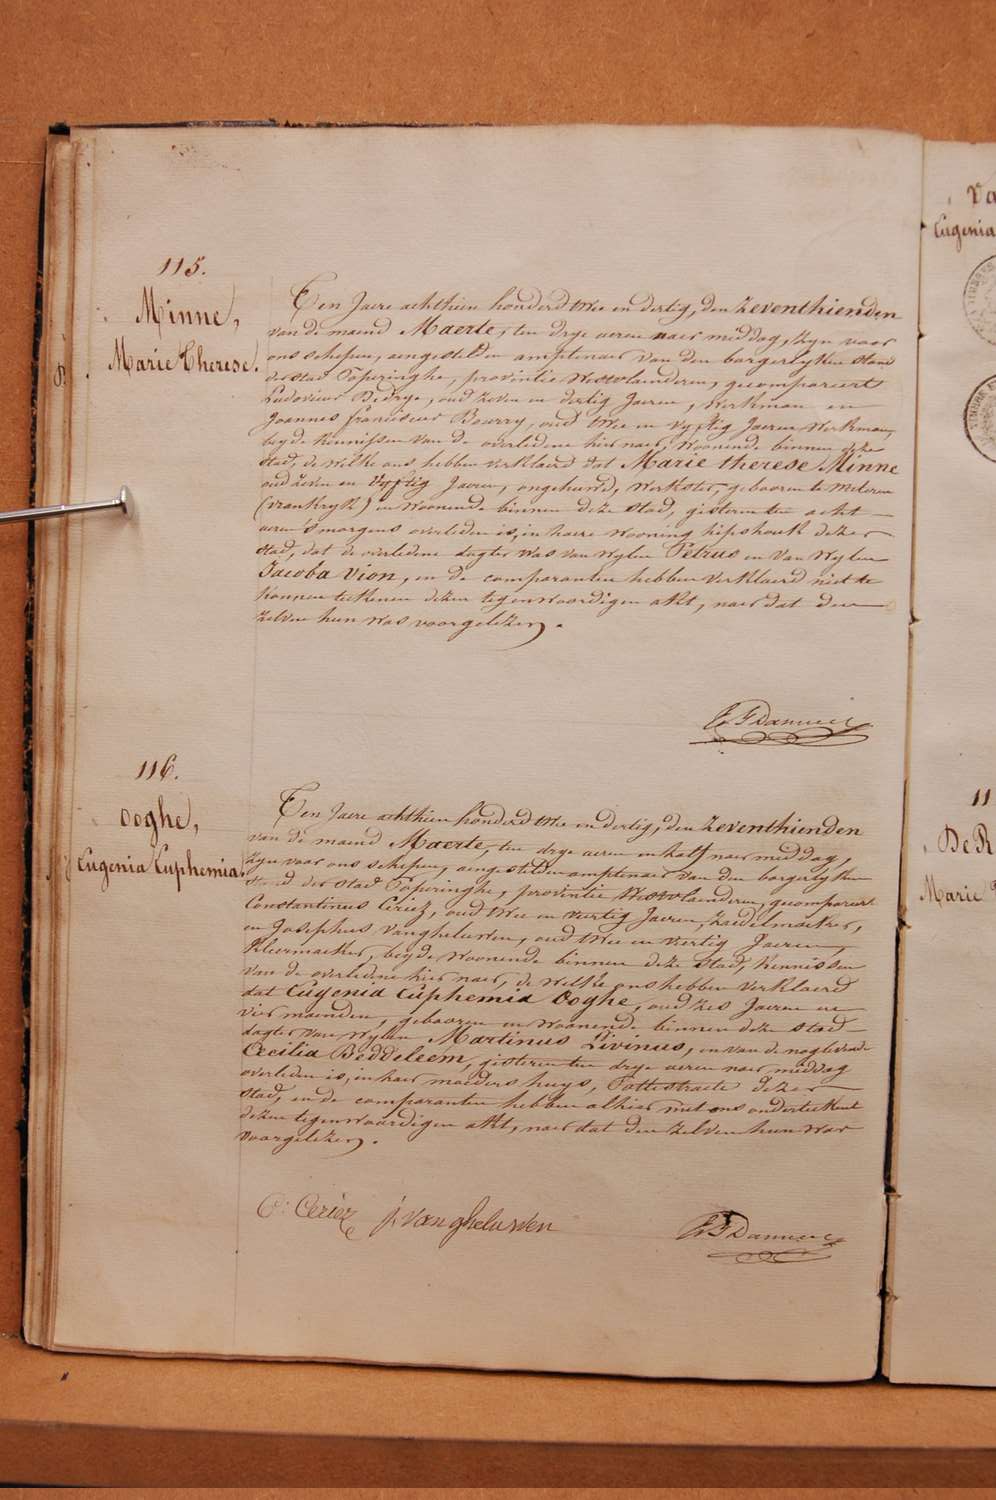 115.
Minne,
Marie Therese.
Ten Jaere achthien honderd twee en dertig, den zeventhienden
van de maend Maerte, ten drye ueren naer middag, zyn voor
ons schepen, aengestelden amptenaer van den borgerlyken stand
der stad Poperinghe, provintie Westvlaenderen, gecompareert
Ludovicus Bedrye, oud zeven en dertig Jaeren, werkman en
Joannes franciscus Bourry, oud twee en vyftig Jaeren werkman,
beyde kennissen van de overledene hier naer, woonende binnen deze
stad, de welke ons hebben verklaerd dat Marie therese Minne
oud zeven en vyftig Jaeren, ongehuwd, werkster, gebooren te Meteren
(vrankryk) en woonende binnen deze stad, gisteren ten acht
ueren 's morgens overleden is, in haere wooning hipshouk dezer
stad, dat de overledene dogter was van wylen Petrus en van wylen
Jacoba Vion, en de comparanten hebben verklaerd niet te
konnen teekenen dezen tegenwoordigen akt, naer dat den
zelven hun was voorgelezen.
116.
Ooghe,
Eugenia Euphemia.
Ten Jaere achthien honderd twee en dertig, den zeventhienden
van de maend Maerte, ten drye ueren en half naer middag,
zyn voor ons schepen, aengestelden amptenaer van den borgerlyken
stand der stad Poperinghe, provintie Westvlaenderen, gecompareert
Constantinus Ceriez, oud twee en veertig Jaeren, zaedelmaeker,
en Josephus Vangheluwen, oud twee en veertig Jaeren,
kleermaeker, beyde woonende binnen deze stad, kennissen
van de overledene hier naer, de welke ons hebben verklaerd
dat Eugenia Euphemia Ooghe, oud zes Jaeren en
vier maenden, gebooren en woonende binnen deze stad
dogter van wylen Martinus Livinus, en van de noglevende
Cecilia Beddeleem, gisteren ten drye ueren naer middag
overleden is, in haer moeders huys, Pottestraete dezer
stad, en de comparanten hebben alhier met ons onderteekent
dezen tegenwoordigen akt, naer dat den zelven hun was
voorgelezen.
C: Ceriez j. vangheluwen
11
De R
Marie
Va
Eugenia